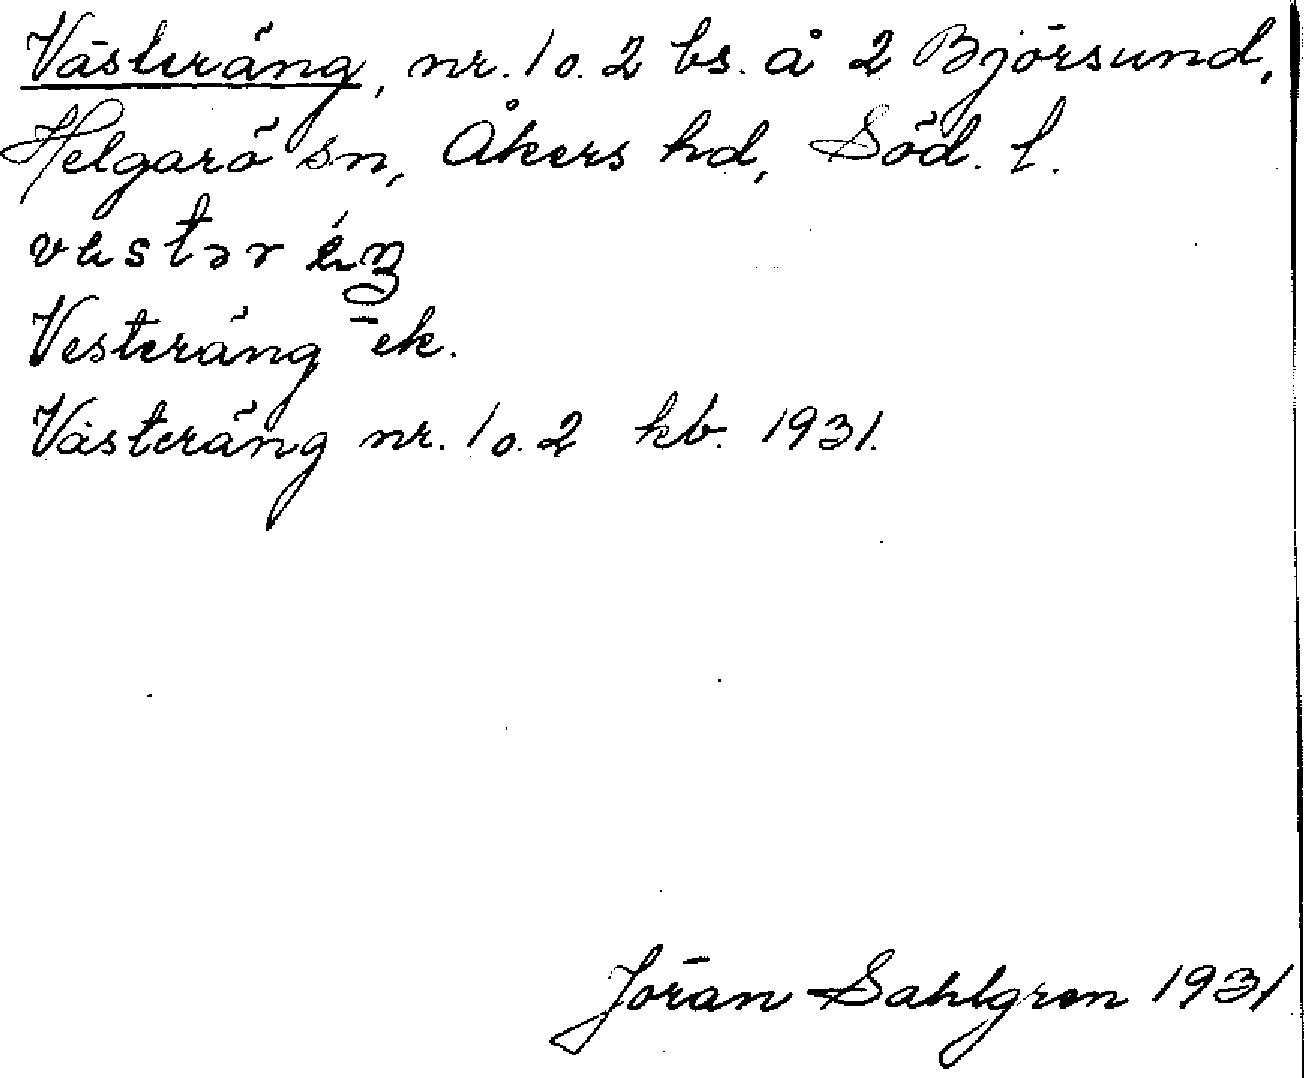 Västeräng, nr. 1 o. 2 bs. å 2 Björsund,
Helgarö sn, Åkers hd, Söd. l.
Vesteräng ek.
Västeräng nr. 1 o. 2 kb. 1931.
Jöran Sahlgren 1931